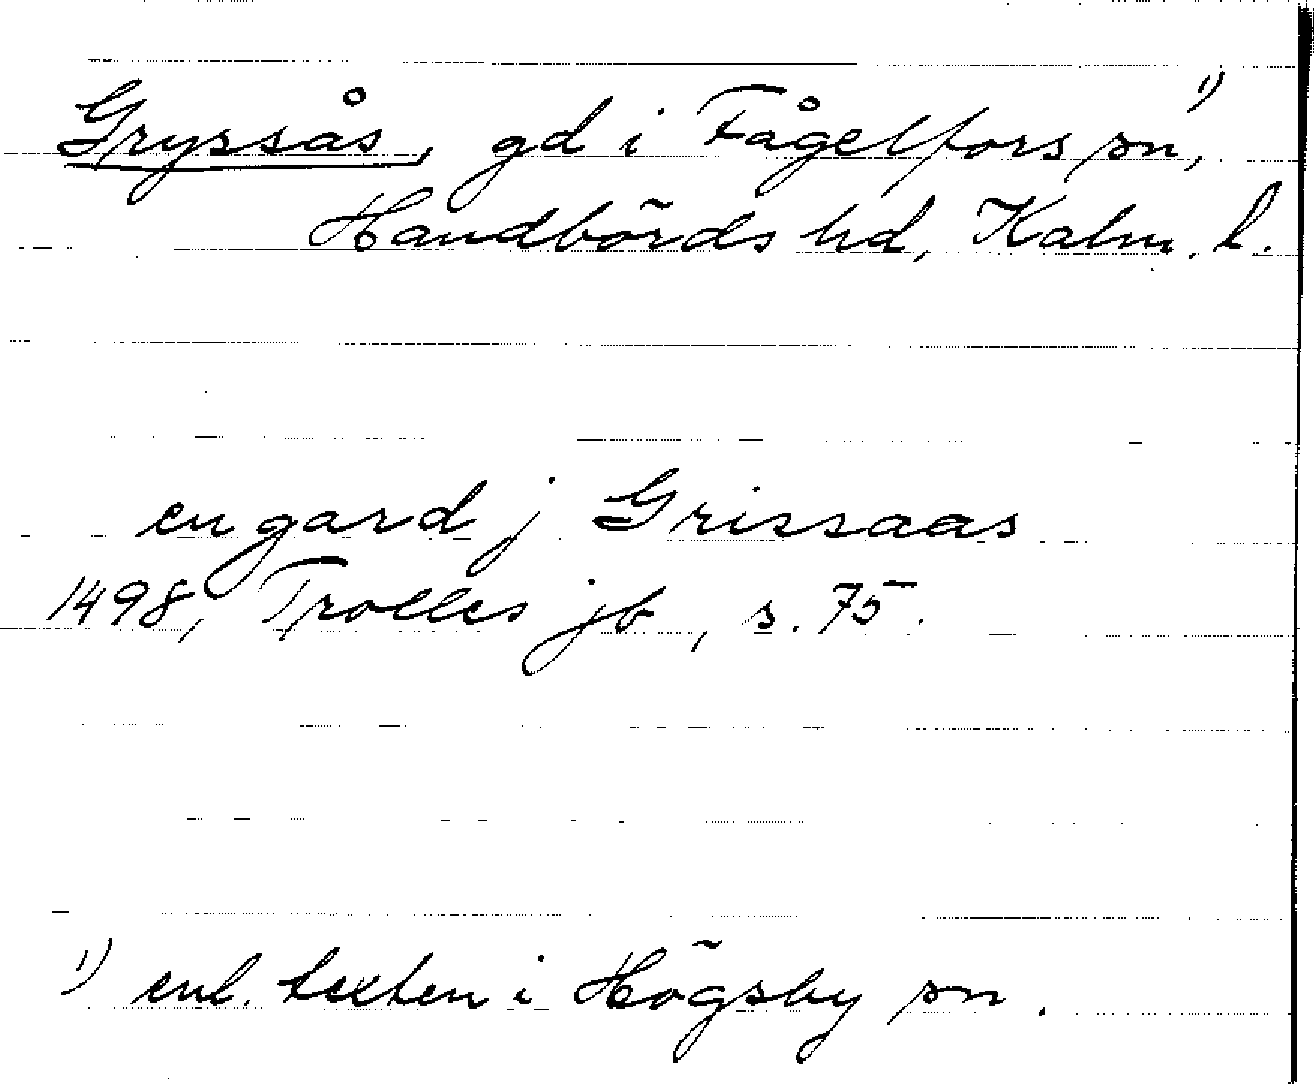 Gryssås, gd i Fågelfors sn,¹⁾
Handbörds hd, Kalm. l.
en gard j Grissaas
1498, Trolles jb, s. 75.
¹⁾ enl. texten i Högsby sn.